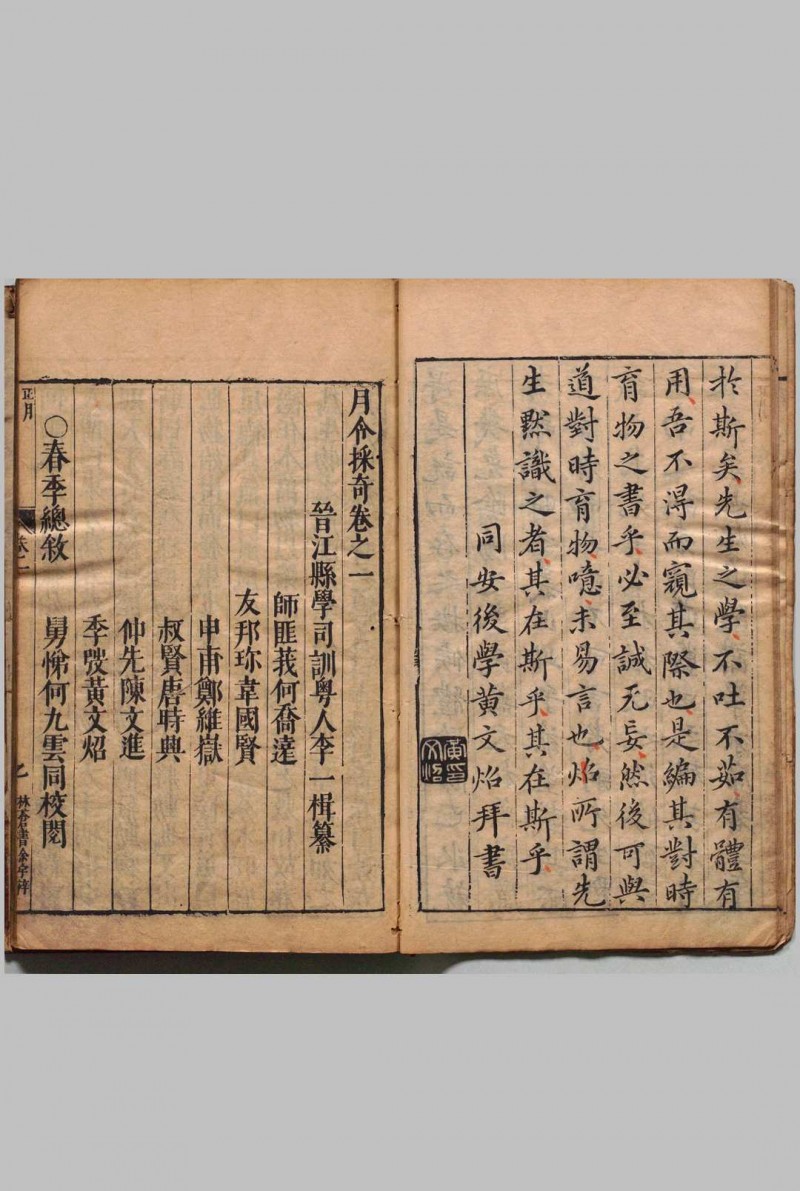 於斯矣先生之學不吐不茹有體有
用吾不得而窺其際也是編其對時
育物之書乎必至誠无妄然後可與
道對時育物噫未易言也炤所謂先
生默識之者其在斯乎其在斯乎
同安後學黃文炤拜書
黃印文炤
月令採奇卷之一
晉江縣學司訓粵人李一楫纂
師匪莪何喬遠
友邦珎韋國賢
申甫鄭維嶽
叔賢唐時興
仲先陳文進
季弢黃文炤
舅悌何九雲同校閱
○春季總敘
正月
卷一